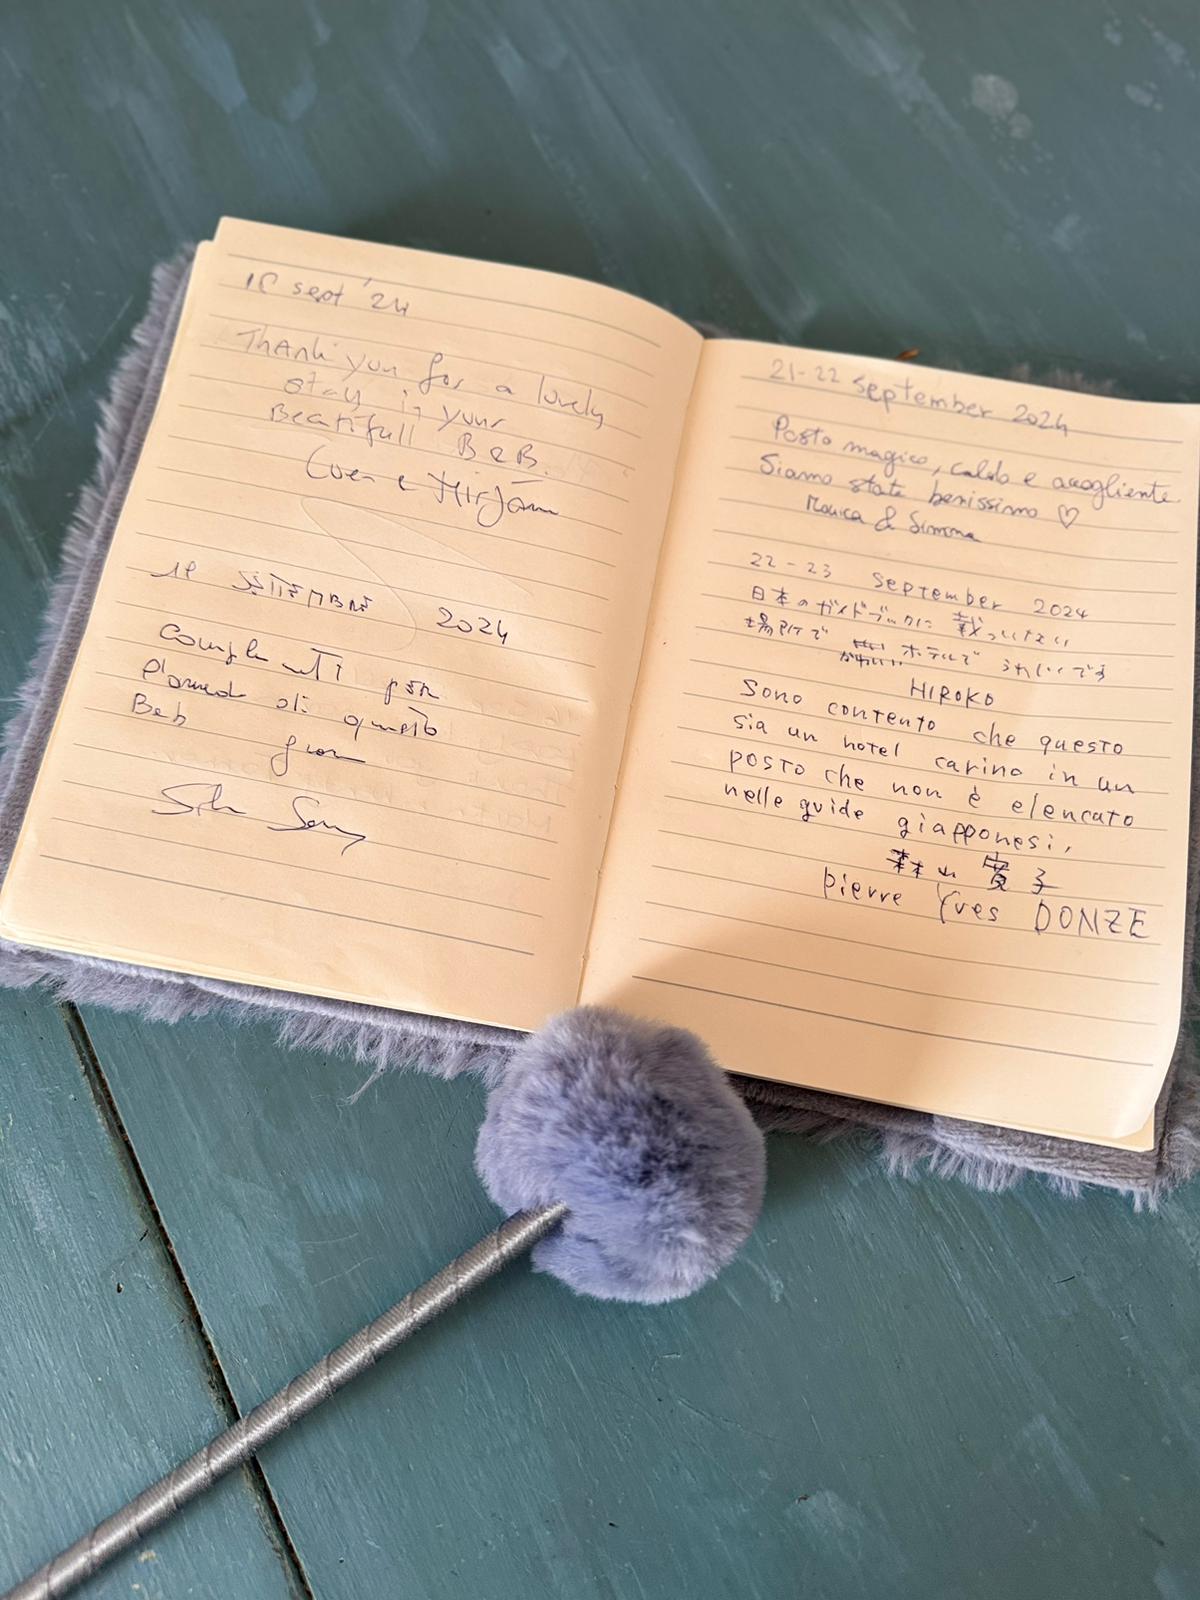 sept '24
Thank you for a lovely
stay in your
Beautifull B&B.
Coen & Mirjam
SETTEMBRE 2024
Complimenti per
di questo
BeB
21-22 September 2024
Posto magico, caldo e accogliente
Siamo state benissimo ♡
Monica & Simona
22-23 September 2024
日本のガイドブックに載っていない
場所で かわいい ホテルで うれしいです
HIROKO
Sono contento che questo
sia un hotel carino in un
posto che non è elencato
nelle guide giapponesi,
森山 寛子
pierre Yves DONZE